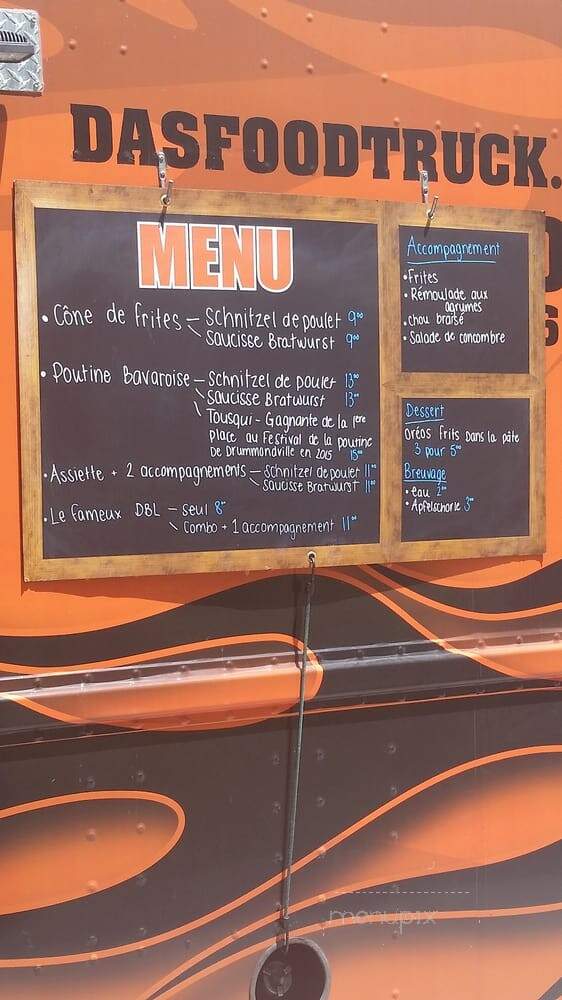 DASFOODTRUCK.
MENU
• Cône de frites – Schnitzel de poulet 9⁰⁰
Saucisse Bratwurst 9⁰⁰
• Poutine Bavaroise – Schnitzel de poulet 13⁰⁰
Saucisse Bratwurst 13⁰⁰
Tousqui - Gagnante de la 1ere
place au Festival de la poutine
de Drummondville en 2015 15⁰⁰
• Assiette + 2 accompagnements – Schnitzel de poulet 11⁰⁰
Saucisse Bratwurst 11⁰⁰
• Le Fameux DBL – Seul 8⁰⁰
Combo + 1 accompagnement 11⁰⁰
Accompagnement
• Frites
• Rémoulade aux
agrumes
• chou braisé
• Salade de concombre
Dessert
Oréos frits dans la pâte
3 pour 5⁰⁰
Breuvage
• eau 2⁰⁰
• Apfelschorle 3⁰⁰
6
menupix